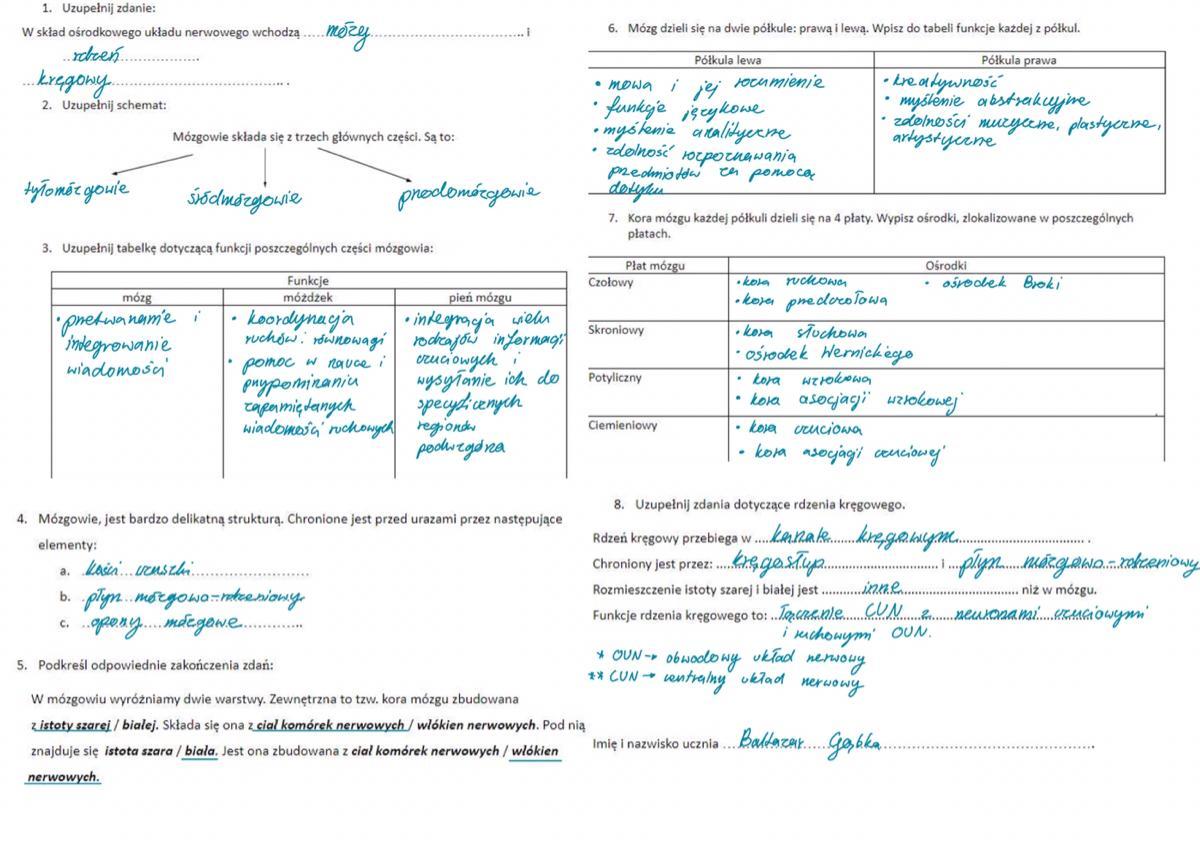 1. Uzupełnij zdanie:
W skład ośrodkowego układu nerwowego wchodzą .....mózg................................ i
..rdzeń................
...kręgowy.................................. .
2. Uzupełnij schemat:
Mózgowie składa się z trzech głównych części. Są to:
tyłomózgowie śródmózgowie przodomózgowie
3. Uzupełnij tabelkę dotyczącą funkcji poszczególnych części mózgowia:
Funkcje
mózg móżdżek pień mózgu
• przetwarzanie i
integrowanie
wiadomości
• koordynacja
ruchów i równowagi
• pomoc w nauce i
przypominaniu
zapamiętanych
wiadomości ruchowych
• integracja wielu
rodzajów informacji
czuciowych i
wysyłanie ich do
specyficznych
regionów
podwzgórza
4. Mózgowie, jest bardzo delikatną strukturą. Chronione jest przed urazami przez następujące
elementy:
a. .kości czaszki........................
b. .płyn mózgowo-rdzeniowy
c. ..opony....mózgowe...............
5. Podkreśl odpowiednie zakończenia zdań:
W mózgowiu wyróżniamy dwie warstwy. Zewnętrzna to tzw. kora mózgu zbudowana
z istoty szarej / białej. Składa się ona z ciał komórek nerwowych / włókien nerwowych. Pod nią
znajduje się istota szara / biała. Jest ona zbudowana z ciał komórek nerwowych / włókien
nerwowych.
6. Mózg dzieli się na dwie półkule: prawą i lewą. Wpisz do tabeli funkcje każdej z półkul.
Półkula lewa Półkula prawa
• mowa i jej rozumienie
• funkcje językowe
• myślenie analityczne
• zdolność rozpoznawania
przedmiotów za pomocą
dotyku
• kreatywność
• myślenie abstrakcyjne
• zdolności muzyczne, plastyczne,
artystyczne
7. Kora mózgu każdej półkuli dzieli się na 4 płaty. Wypisz ośrodki, zlokalizowane w poszczególnych
płatach.
Płat mózgu Ośrodki
Czołowy • kora ruchowa • ośrodek Broki
• kora przedczołowa
Skroniowy • kora słuchowa
• ośrodek Wernickego
Potyliczny • kora wzrokowa
• kora asocjacji wzrokowej
Ciemieniowy • kora czuciowa
• kora asocjacji czuciowej
8. Uzupełnij zdania dotyczące rdzenia kręgowego.
Rdzeń kręgowy przebiega w ....kanale.....kręgowym........................... .
Chroniony jest przez: .....kręgosłup........................... i ...płyn mózgowo-rdzeniowy
Rozmieszczenie istoty szarej i białej jest ...........inne............................ niż w mózgu.
Funkcje rdzenia kręgowego to: ..łączenie CUN z neuronami czuciowymi
i ruchowymi OUN.
* OUN → obwodowy układ nerwowy
** CUN → centralny układ nerwowy
Imię i nazwisko ucznia ...Baltazar.....Gąbka...................................................